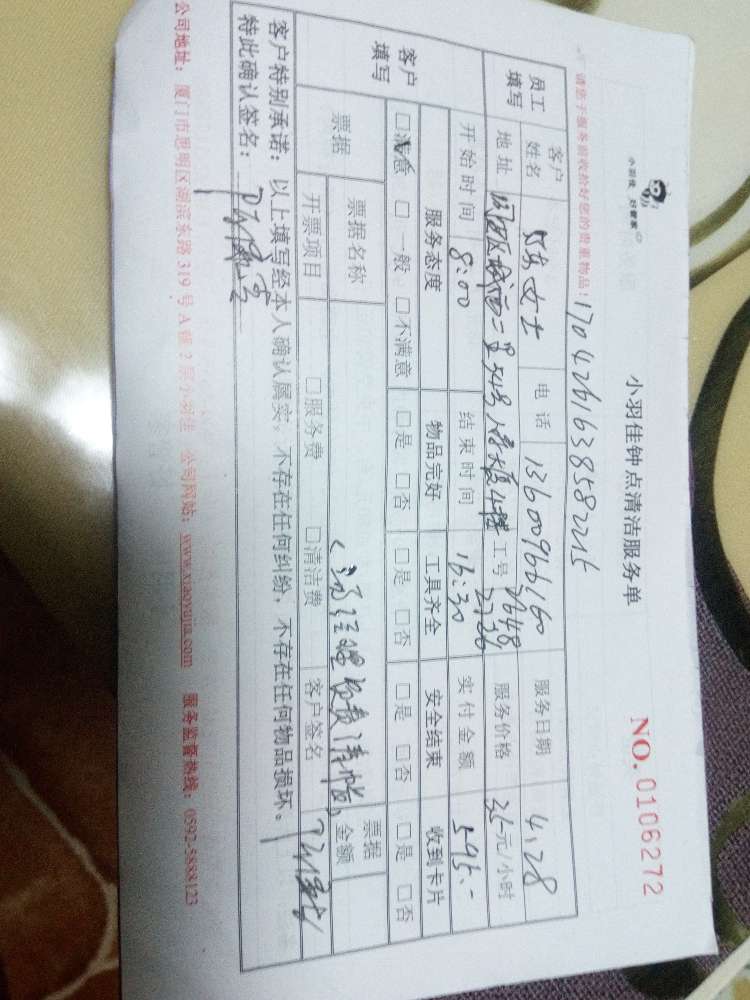 小羽佳 好管家
小羽佳钟点清洁服务单
NO. 0106272
请您于服务前收拾好您的贵重物品!
1704261638582215
员工填写
客户姓名 女士 电话 13600966160 服务日期 4.28
地址 工号 2648 2736 服务价格 35元/小时
开始时间 8:00 结束时间 16:30 实付金额 595.-
客户填写
服务态度 物品完好 工具齐全 安全结束 收到卡片
□满意 □一般 □不满意 □是 □否 □是 □否 □是 □否 □是 □否
票据 票据名称 票据金额
开票项目 □服务费 □清洁费 客户签名
客户特别承诺:以上填写经本人确认属实,不存在任何纠纷,不存在任何物品损坏。
特此确认签名:
公司地址:厦门市思明区湖滨东路319号A幢2层小羽佳 公司网站:www.xiaoyujia.com 服务监督热线:0592-5888123